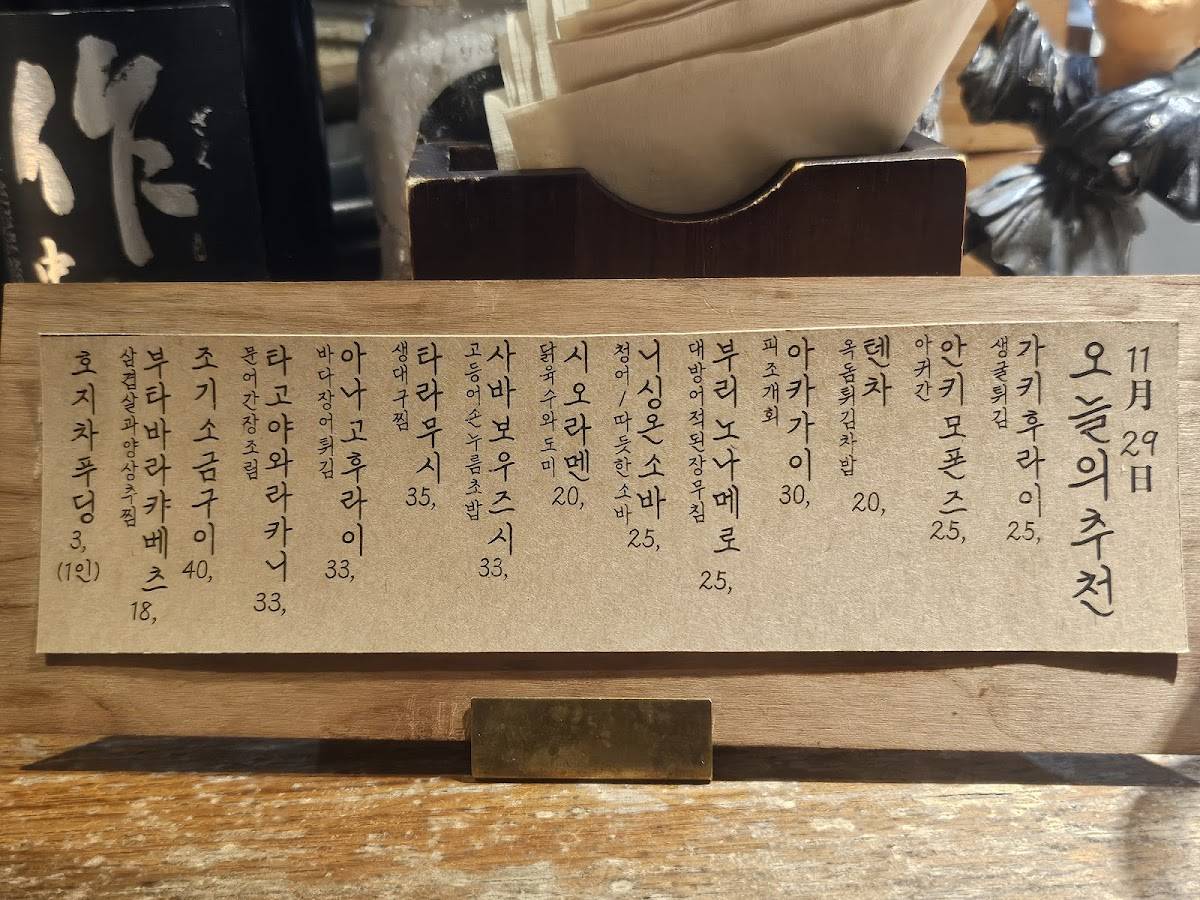 11月 29日
오늘의추천
가키후라이 25,
생굴튀김
안키모폰즈 25,
아귀간
텐차 20,
옥돔튀김차밥
아카가이 30,
피조개회
부리노나메로 25,
대방어적된장무침
니싱온소바 25,
청어/따듯한소바
시오라멘 20,
닭육수와도미
사바보우즈시 33,
고등어손누름초밥
타라무시 35,
생대구찜
아나고후라이 33,
바다장어튀김
타고야와라카니 33,
문어간장조림
조기소금구이 40,
부타바라캬베츠 18,
삼겹살과양상추찜
호지차푸딩 3,
(1인)
作